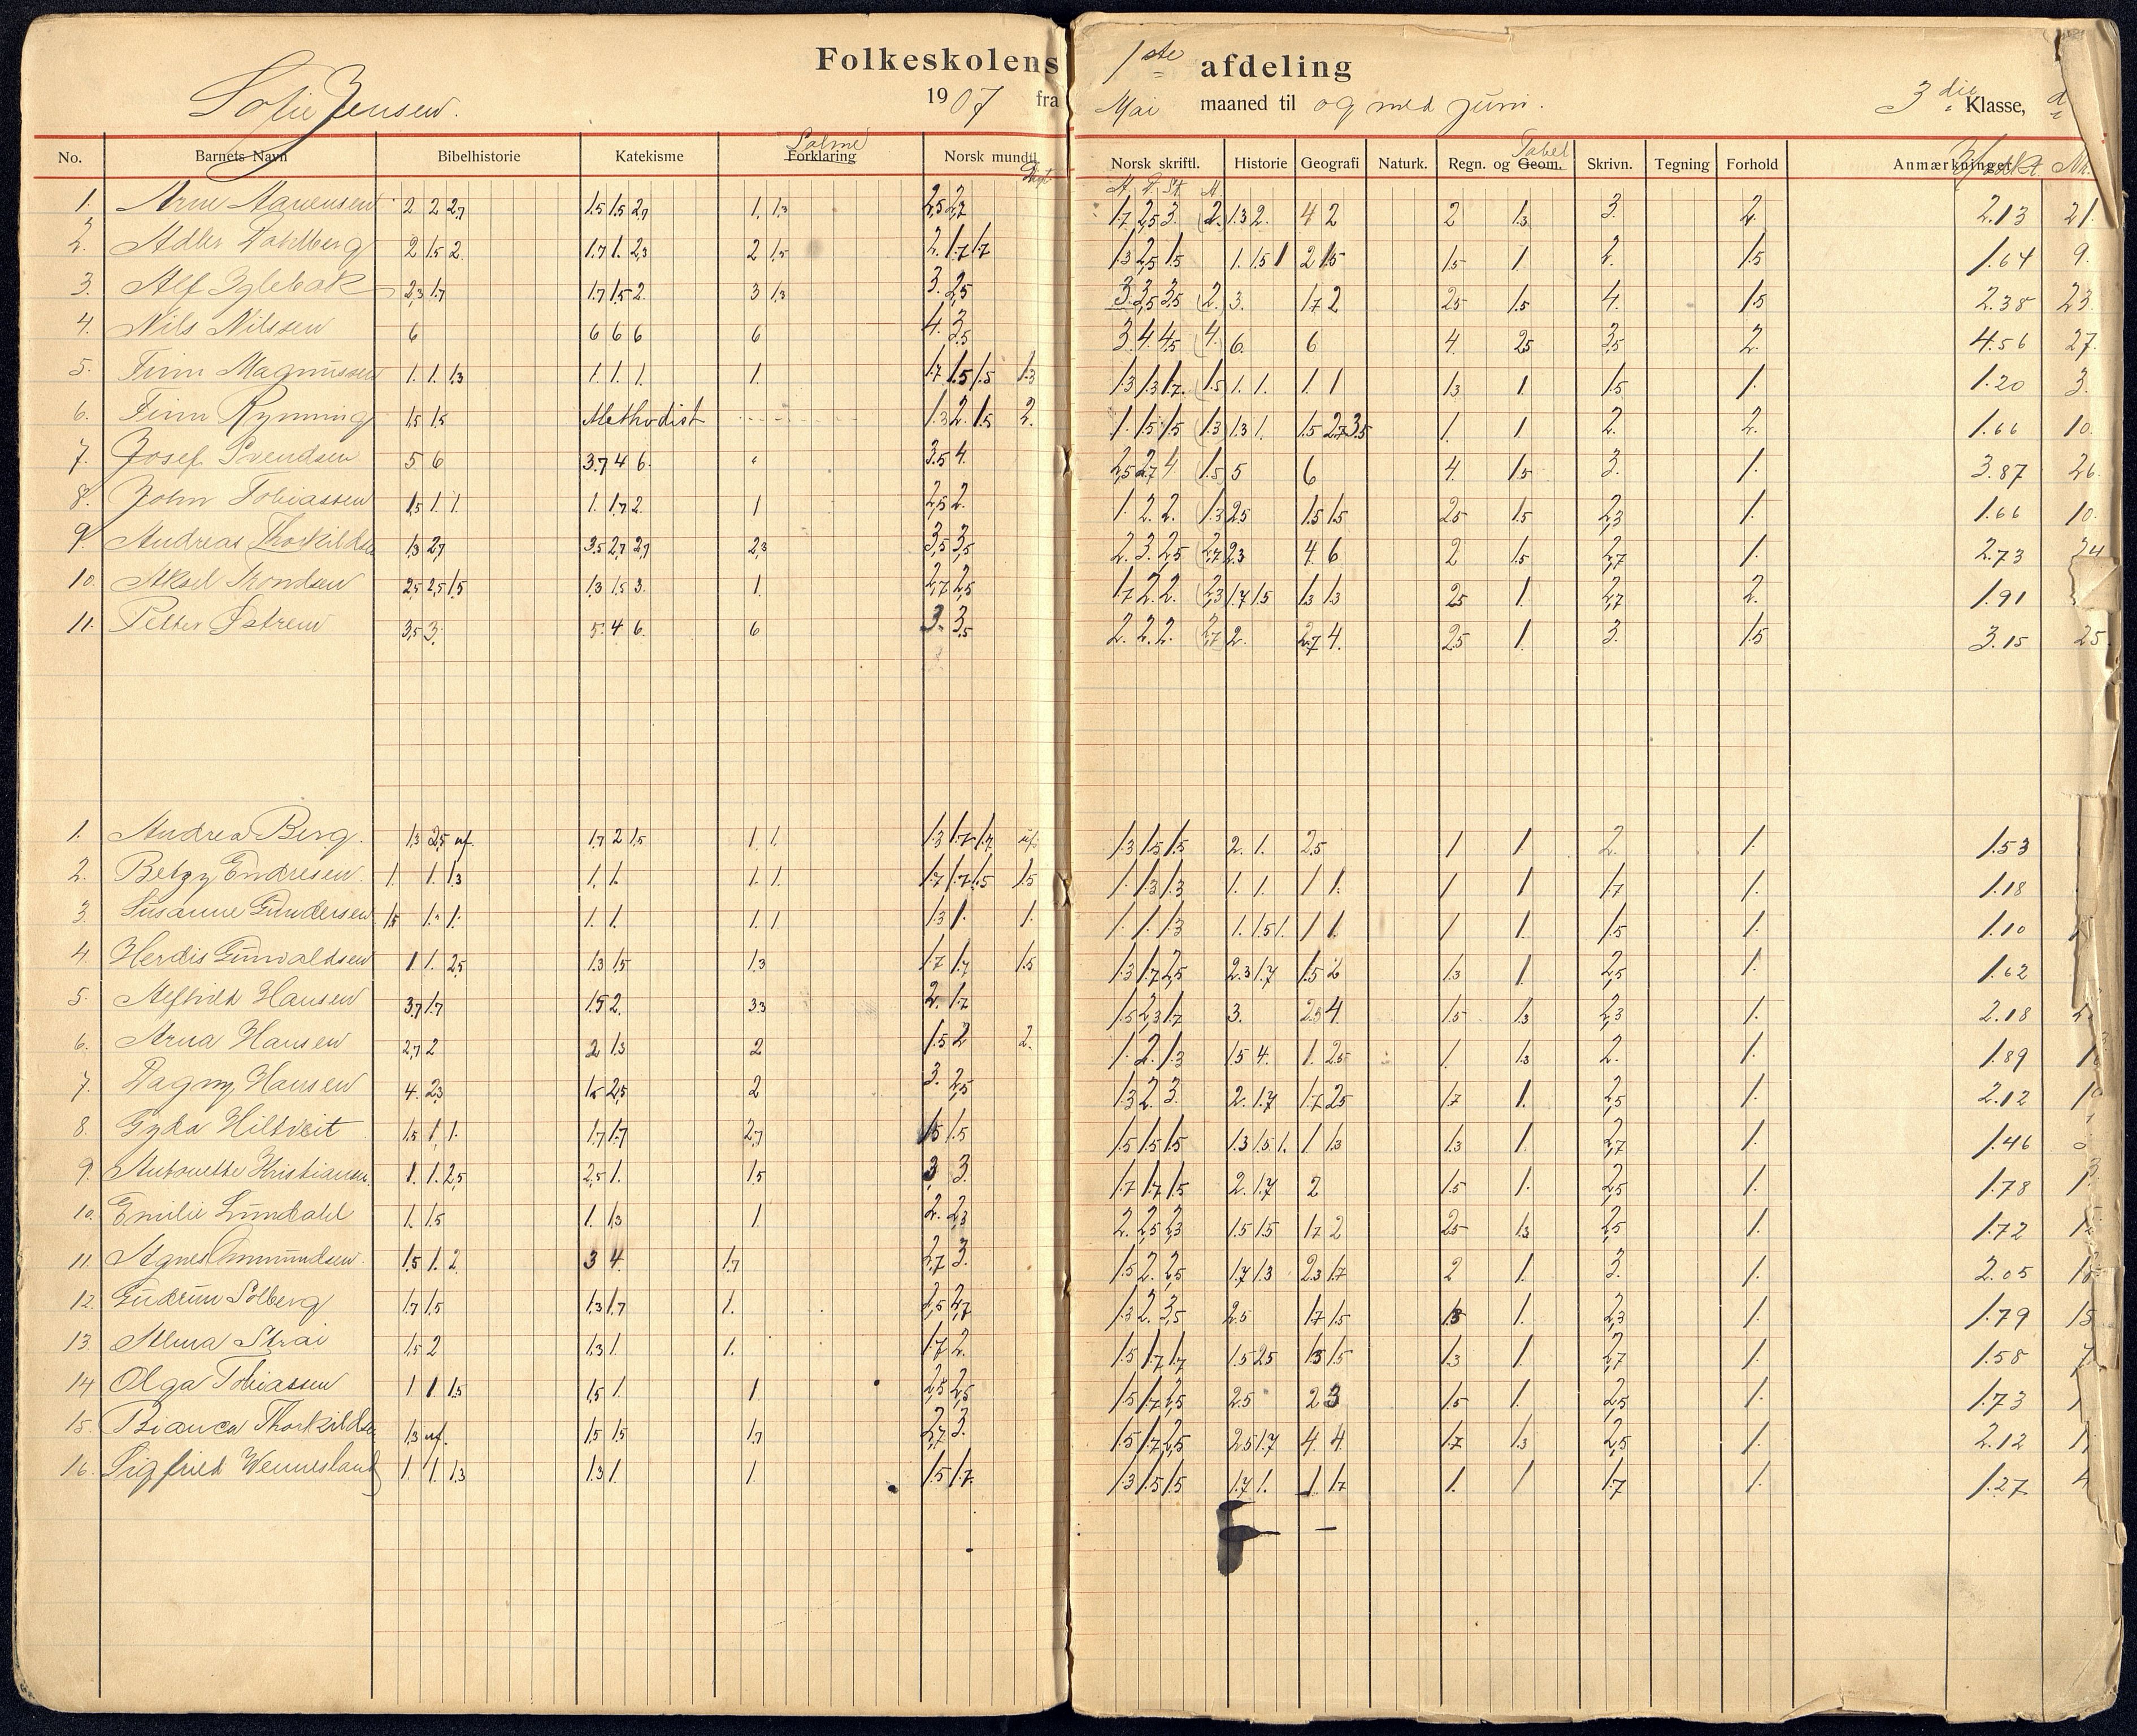 Folkeskolens 1ste afdeling
Sofie Jensen. 1907 fra Mai maaned til og med juni. 3die Klasse, d
No. Barnets Navn Bibelhistorie Katekisme Salme Forklaring Norsk mundtl. Norsk skriftl. Historie Geografi Naturk. Regn. og Geom. Tabel Skrivn. Tegning Forhold Anmærkninger Nr.
1. Arne Aanensen 2 2 2,7 1.5 1.5 2,7 1. 1,3 2,5 2,7 1.7 2,5 3. 2. 1.3 2. 4 2 2 1.3 3. 2. 2.13 21.
2. Adler Dahlberg 2 1.5 2. 1.7 1. 2,3 2 1,5 2. 1.7 1.7 1.3 2,5 1.5 1. 1.5 1 2 1.5 1.5 1. 2. 1.5 1.64 9.
3. Alf Iglebæk 2,3 1.7 1.7 1.5 2. 3 1,3 3. 2,5 3. 3,5 3,5 2. 3. 1.7 2 2.5 1.5 4. 1.5 2.38 23.
4. Nils Nilssen 6 6 6 6 6 4. 3.5 3. 4. 4.5 4. 6. 6 4. 2.5 3,5 2. 4.56 27.
5. Finn Magnussen 1. 1. 1.3 1. 1. 1. 1. 1.7 1.5 1.5 1.3 1.3 1.3 1.7. 1.5 1. 1. 1. 1 1.3 1. 1.5 1. 1.20 3.
6. Finn Rynning 1.5 1.5 Methodist 1.3 2. 1.5 2. 1. 1.5 1.5 1.3 1.3 1. 1.5 2.7 3.5 1. 1 2. 2. 1.66 10.
7. Josef Svendsen 5 6 3.7 4 6. 3.5 4. 2,5 2.7 4 1.5 5 6 4. 1.5 3. 1. 3.87 26.
8. John Tobiassen 1,5 1. 1. 1. 1.7 2. 1 2,5 2. 1. 2. 2. 1.3 2.5 1.5 1.5 2.5 1.5 2,3 1. 1.66 10.
9. Andreas Thorkilds 1,3 2,7 3.5 2,7 2,7 2,3 3,5 3,5 2. 3. 2,5 2,7 2.3 4. 6 2 1.5 2,7 1. 2.73 24
10. Aksel Trondsen 2,5 2,5 1,5 1.3 1.5 3. 1. 2,7 2,5 1.7 2. 2. 2,3 1.7 1.5 1.3 1.3 2.5 1. 2,7 2. 1.91
11. Petter Østrem 3,5 3. 5. 4 6. 6 3. 3,5 2. 2. 2. 2,7 2. 2.7 4. 2.5 1. 3. 1.5 3.15 25.
1. Andrea Berg. 1,3 2,5 uf. 1.7 2 1.5 1. 1. 1.3 1.7 1.7 uf. 1.3 1.5 1.5 2. 1. 2.5 1 1 2. 1. 1.53
2. Betzy Endresen. 1. 1. 1.3 1. 1. 1. 1. 1.7 1.7 1.5 1.5 1. 1.3 1.3 1. 1. 1 1. 1 1 1.7 1. 1.18
3. Susanne Gundersen 1.5 1. 1. 1. 1. 1. 1 1.3 1. 1. 1. 1. 1.3 1. 1.5 1. 1 1. 1 1. 1.5 1. 1.10
4. Herdis Gunvaldsen 1 1. 2,5 1.3 1.5 1.3 1.7 1.7 1.5 1.3 1.7 2,5 2.3 1.7 1.5 2 1.3 1. 2,5 1. 1.62
5. Alfhild Hansen 3,7 1.7 1.5 2. 3.3 2. 1.7 1.5 2,3 1.7 3. 2.5 4. 1.5 1.3 2,3 1. 2.18
6. Arna Hansen 2,7 2 2 1.3 2 1.5 2 2. 1. 2. 1.3 1.5 4. 1. 2.5 1. 1.3 2. 1. 1.89
7. Dagny Hansen 4. 2.3 1.5 2,5 2 3. 2,5 1.3 2. 3. 2. 1.7 1.7 2.5 1.7 1. 2,5 1. 2.12
8. Gyda Hiltveit 1.5 1. 1. 1.7 1.7 2,7 1.5 1.5 1.5 1.5 1.5 1.3 1.5 1. 1 1.3 1.3 1. 2,7 1. 1.46
9. Antonette Kristiansen. 1. 1. 2,5 2,5 1. 1.5 3. 3. 1.7 1.7 1.5 2. 1.7 2 1.5 1. 2,5 1. 1.78
10. Emilie Lundahl 1. 1.5 1. 1.3 1. 2. 2,3 2. 2,5 2,3 1.5 1.5 1.7 2 2.5 1.3 2,5 1. 1.72
11. Agnes Ommundsen. 1.5 1. 2. 3 4. 1.7 2,7 3. 1.5 2. 2,5 1.7 1.3 2.3 1.7 2 1. 3. 1. 2.05
12. Gudrun Solberg 1.7 1.5 1.3 1.7 1. 2,5 2,7 1.3 2. 3,5 2.5 1.7 1.5 1.3 1. 2,3 1. 1.79
13. Alma Strai 1.5 2 1.3 1. 1. 1.7 2. 1.5 1.7 1.7 1.5 2.5 1.3 1.5 1.3 1. 2,7 1. 1.58 7
14 Olga Tobiassen 1 1 1.5 1.5 1. 1. 2,5 2,5 1.5 1.7 2,5 2.5 2 3 1.5 1. 2,5 1. 1.73
15. Bianca Thorkilds 1,3 uf. 1.5 1.5 1.7 2,7 3. 1.5 1.7 2,5 2.5 1.7 4. 4. 1.7 1.3 2,5 1. 2.12
16. Sigfried Wennesland 1. 1. 1.3 1.3 1. 1. 1.5 1.7. 1.3 1.5 1.5 1.7 1. 1. 1.7 1. 1 1.7 1. 1.27 4